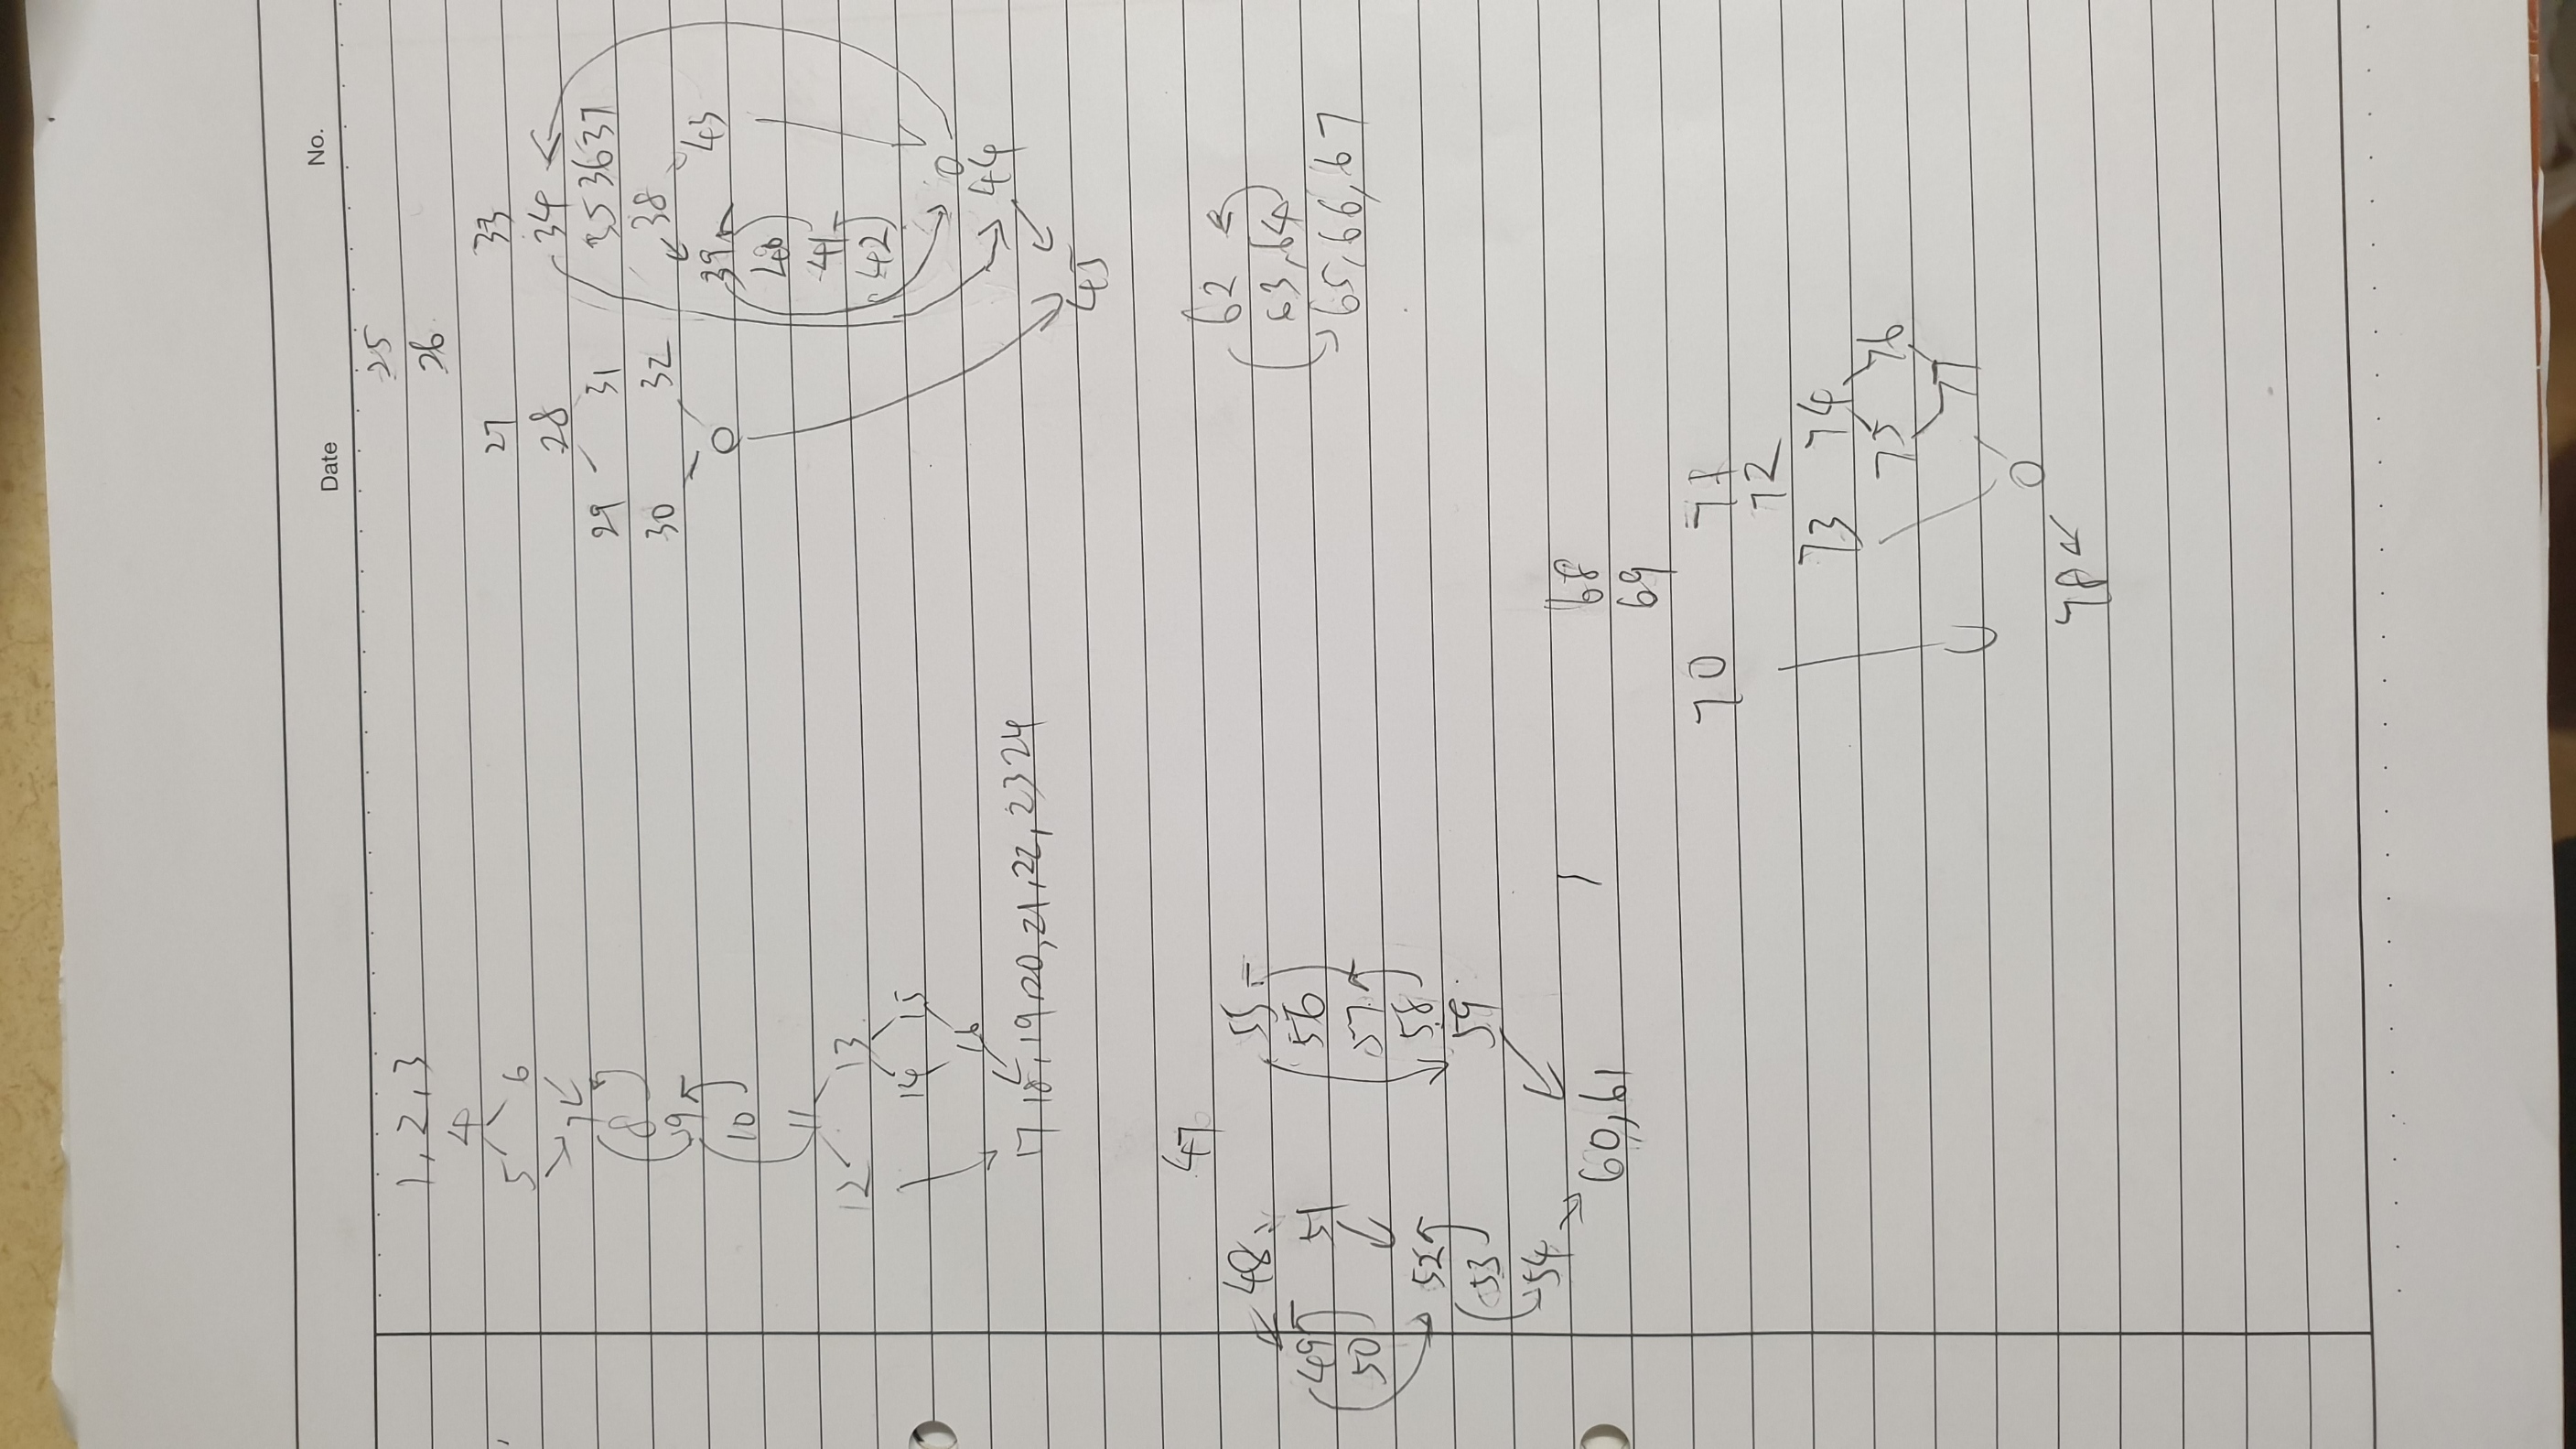 Date No.
1, 2, 3
4
5 6
7
8
9
10
11
12 13
14 15
16
17 18, 19, 20, 21, 22, 23 24
25
26
27 33
28 34
29 31 35 36 37
30 32 38
0 39 43
40
41
42
0
44
45
47
48 55
49 51 56
50 57
52 58
53 59
54
60, 61
62
63, 64
65, 66, 67
68
69
70 71
72
73 74
75 76
77
0
78